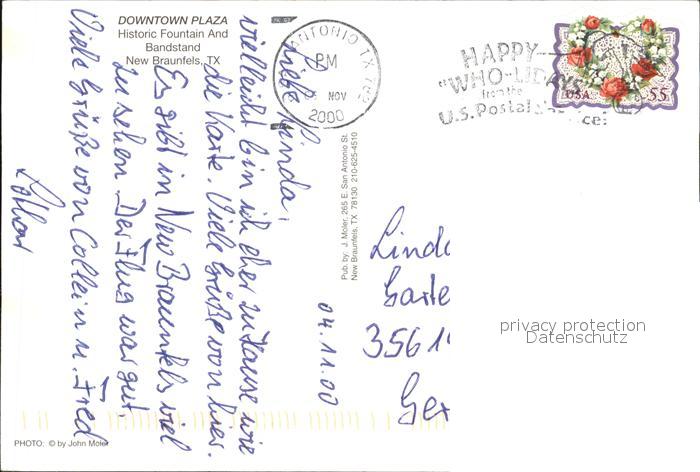 DOWNTOWN PLAZA
Historic Fountain And
Bandstand
New Braunfels, TX
ANTONIO TX 782
PM
NOV
2000
HAPPY
"WHO-LIDAY
from the
U.S. Postal
USA
55
04.11.00
Liebe Linda,
vielleicht bin ich eher zuhause wie
die Karte. Viele Grüße von hier.
Es gibt in New Braunfels viel
zu sehen. Der Flug war gut.
Viele Grüße von Collein u. Fred
Lothar
Pub. by: J. Moler, 265 E. San Antonio St.
New Braunfels, TX 78130 210-625-4510
Linda
Garte
3561
Ger
privacy protection
Datenschutz
PHOTO: © by John Moler